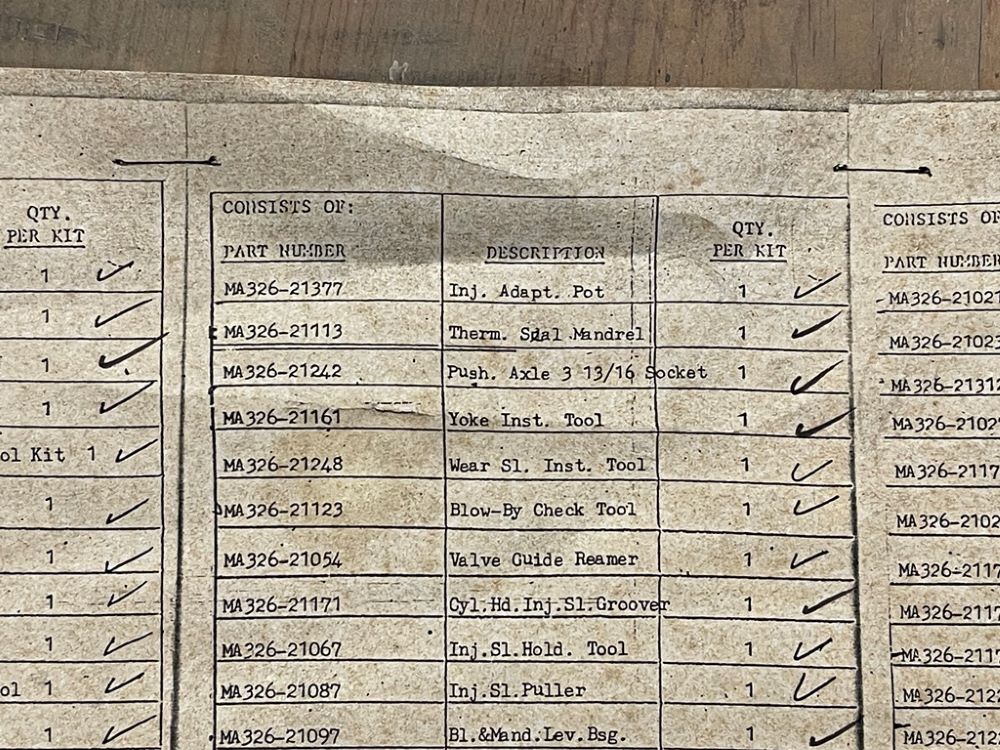 QTY.
PER KIT
1
1
1
1
ol Kit 1
1
1
1
1
ol 1
1
CONSISTS OF:
PART NUMBER DESCRIPTION QTY. PER KIT
MA326-21377 Inj. Adapt. Pot 1
MA326-21113 Therm. Seal Mandrel 1
MA326-21242 Push. Axle 3 13/16 Socket 1
MA326-21161 Yoke Inst. Tool 1
MA326-21248 Wear Sl. Inst. Tool 1
MA326-21123 Blow-By Check Tool 1
MA326-21054 Valve Guide Reamer 1
MA326-21171 Cyl.Hd.Inj.Sl.Groover 1
MA326-21067 Inj.Sl.Hold. Tool 1
MA326-21087 Inj.Sl.Puller 1
MA326-21097 Bl.&Mand.Lev.Bsg. 1
CONSISTS OF
PART NUMBER
MA326-2102
MA326-21023
MA326-2131
MA326-2102
MA326-2117
MA326-2102
MA326-2117
MA326-2117
MA326-2117
MA326-212
MA326-212